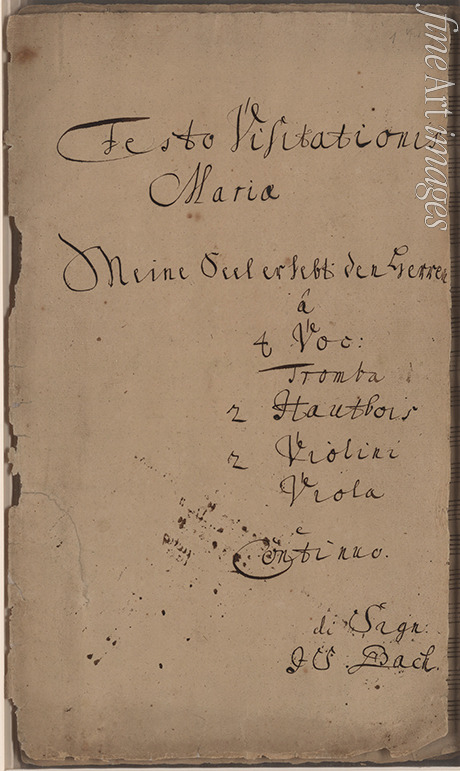 Festo Visitationis
Mariæ
Meine Seel erhebt den Herren
â
4 Voc:
Tromba
2 Hautbois
2 Violini
Viola
e
Continuo.
di Sign:
J S. Bach.
fine Art images